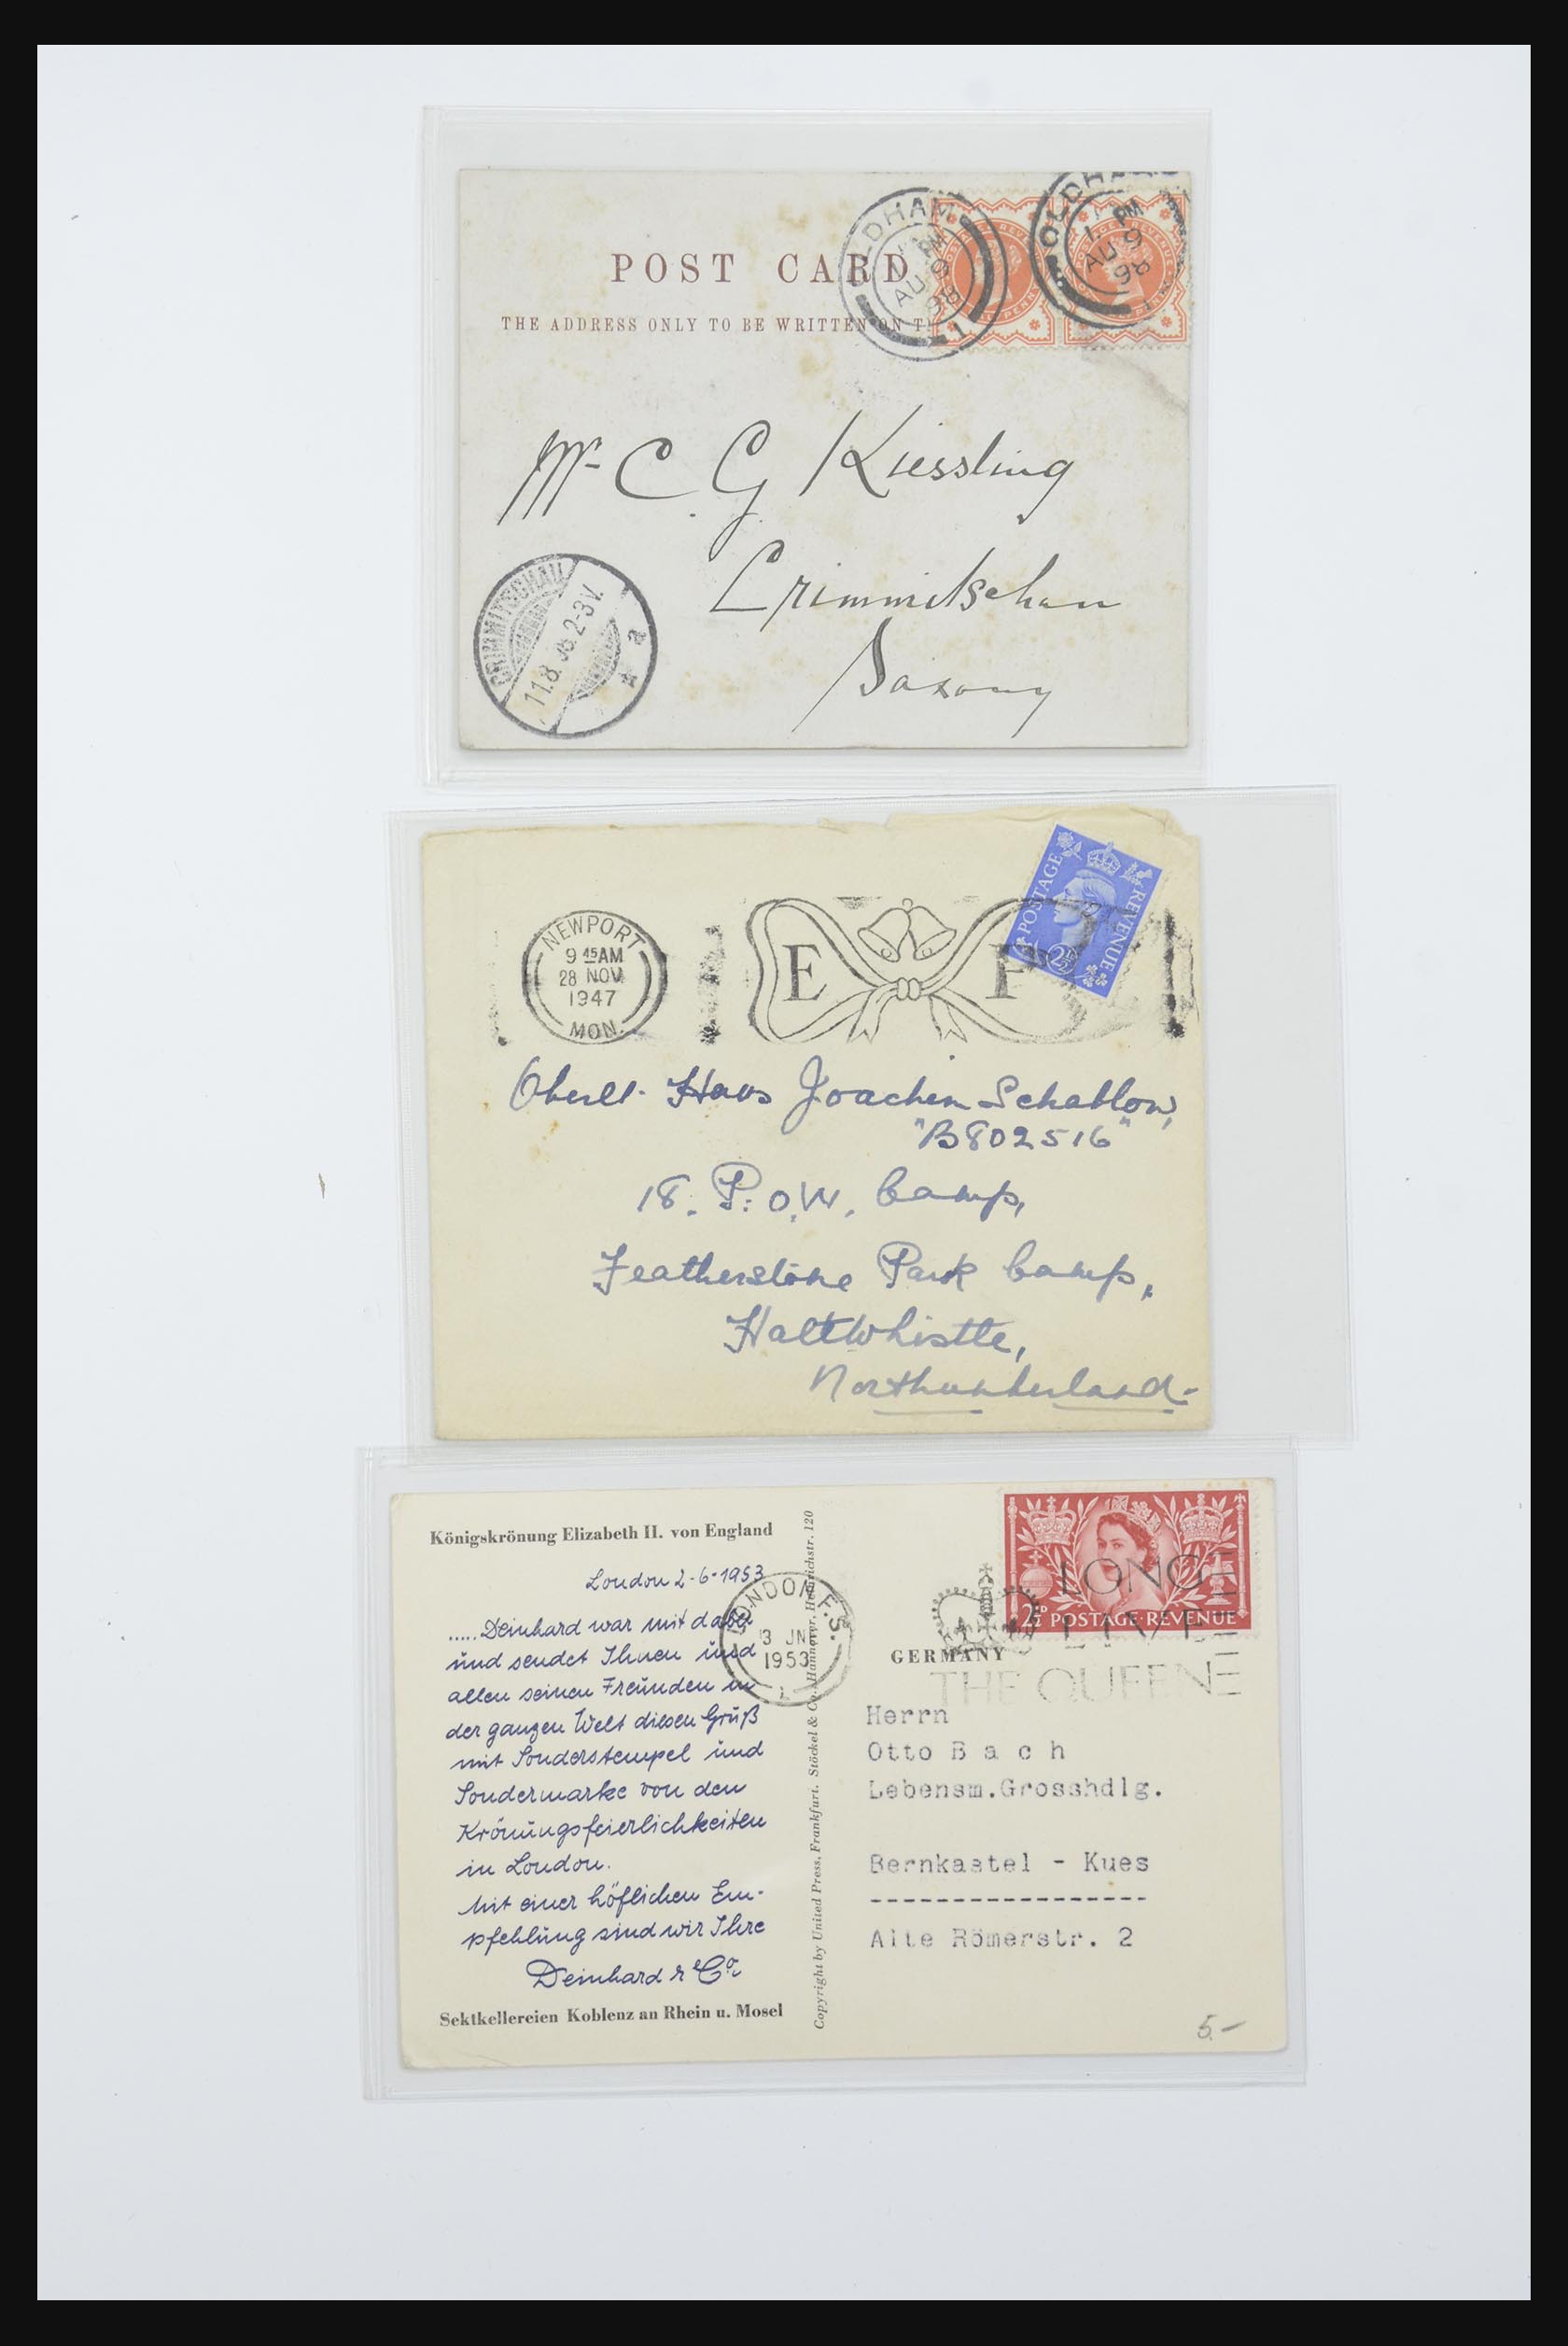 POST CARD
THE ADDRESS ONLY TO BE WRITTEN ON T
OLDHAM
PM
AU 9
98
1
OLDHAM
1. PM
AU 9
98
Mr C. G. Kiessling
Crimmitschau
Saxony
CRIMMITSCHAU
11.8.98.2-3V.
* a
NEWPORT
9 45AM
28 NOV
1947
MON.
E P
POSTAGE REVENUE
2½D
Oberlt. Hans Joachim Schablow,
"B802516"
18. P.O.W. Camp,
Featherstone Park Camp,
Haltwhistle,
Northumberland.
Königskrönung Elizabeth II. von England
London 2-6-1953
..... Deinhard war mit dabei
und sendet Ihnen und
allen seinen Freunden in
der ganzen Welt diesen Gruß
mit Sonderstempel und
Sondermarke von den
Krönungsfeierlichkeiten
in London.
Mit einer höflichen Em-
pfehlung sind wir Ihre
Deinhard & Co.
Sektkellereien Koblenz an Rhein u. Mosel
Copyright by United Press, Frankfurt. Stöckel & Co., Hannover, Heinrichstr. 120
LONDON F.S.
3 JN
1953
2½D POSTAGE·REVENUE
LONG
LIVE
THE QUEEN
GERMANY
Herrn
Otto B a c h
Lebensm.Grosshdlg.
Bernkastel - Kues
-----------------
Alte Römerstr. 2
5.-